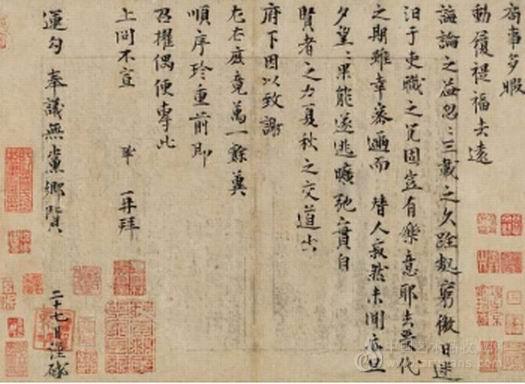 局事多暇
動履禔福去遠
誨論之益忽〻三載之久跧處窮徼日迷
汩于吏職之冗固豈有樂意耶去受代
之期雖幸密邇而替人寂然未聞亦旦
夕望〻果能遂逃曠弛之責自
賢者之力夏秋之交道出
府下因以致謝
左右庶竟萬一餘冀
順序珍重前即
召擢偶便專此
上問不宣 鞏再拜
運勾奉議無黨鄉賢
二十七日謹啟